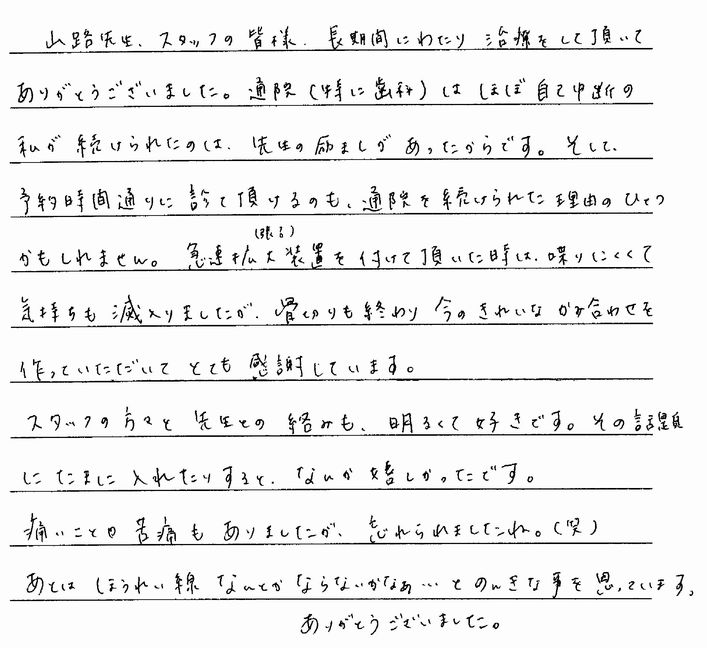 山路先生、スタッフの皆様、長期間にわたり治療をして頂いて
ありがとうございました。通院(特に歯科)はほぼ自己中断の
私が続けられたのは、先生の励ましがあったからです。そして、
予約時間通りに診て頂けるのも、通院を続けられた理由のひとつ
(張る)
かもしれません。急速拡大装置を付けて頂いた時は、喋りにくくて
気持ちも滅入りましたが、骨切りも終わり今のきれいなかみ合わせを
作っていただいてとても感謝しています。
スタッフの方々と先生との絡みも、明るくて好きです。その話題
にたまに入れたりすると、なんか嬉しかったです。
痛いことや苦痛もありましたが、忘れられましたね。(笑)
あとはほうれい線なんとかならないかなぁ…とのんきな事を思っています。
ありがとうございました。